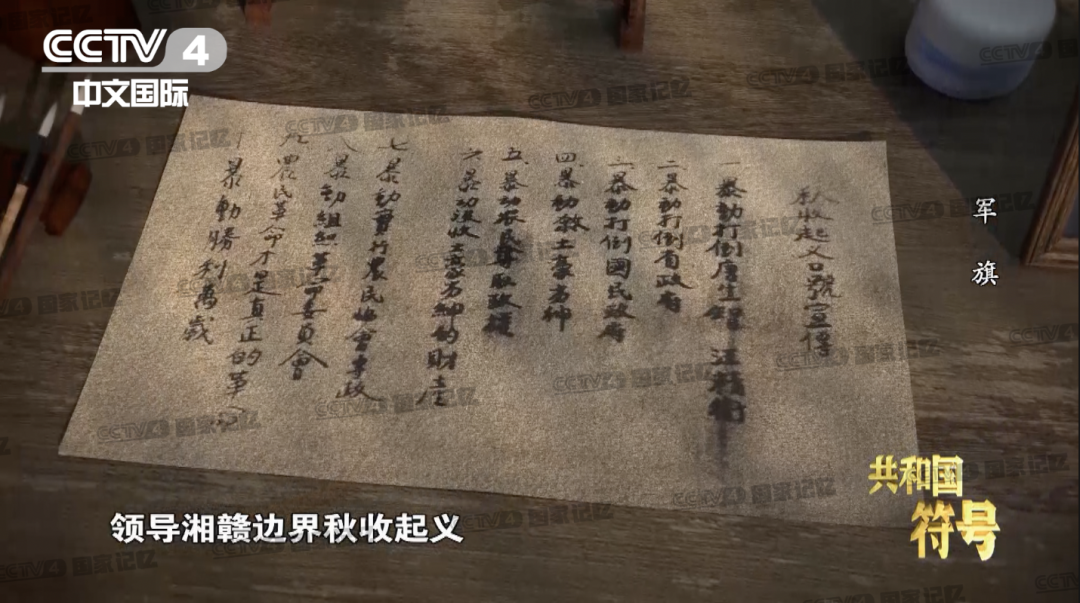 CCTV 4
中文国际
秋收起义口號宣傳
一 暴動打倒唐生智 汪精衛
二 暴動打倒省政府
三 暴動打倒國民政府
四 暴動殺土豪劣紳
五 暴动农民奪取政權
六 暴动没收土豪劣紳的財產
七 暴動實行農民協會專政
八 暴動組織革命委員會
九 農民革命才是真正的革命
十 暴動勝利萬歲
军旗
共和国
符号
领导湘赣边界秋收起义
CCTV4 国家记忆